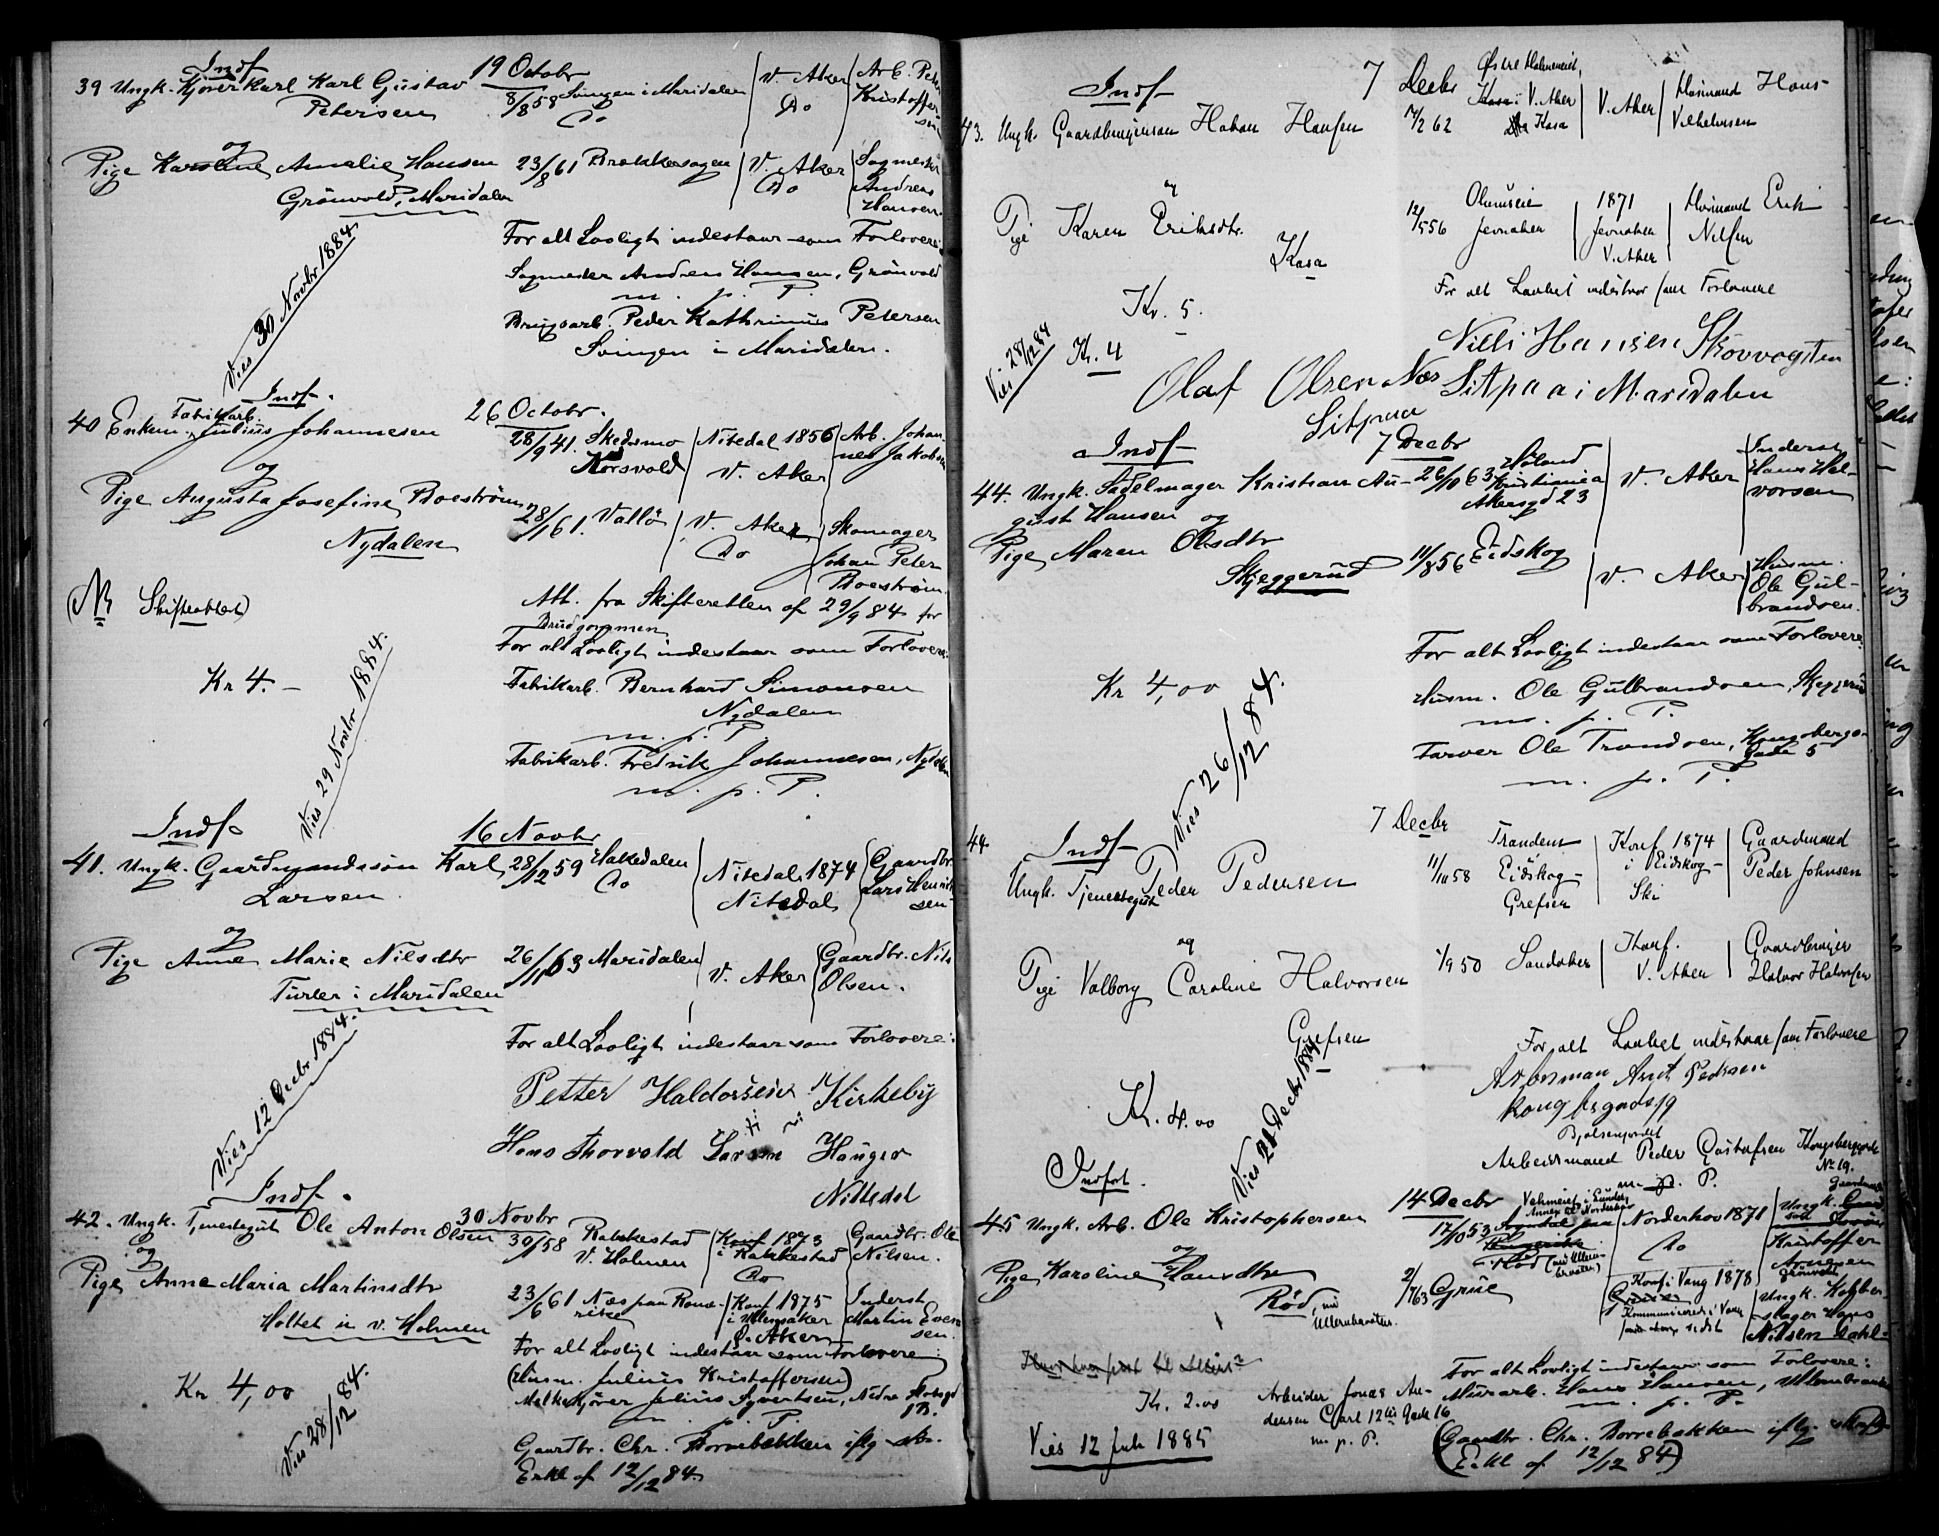 Indf
39 Ungk. Kjörerkarl Karl Gustav
Petersen
19 Octobr
8/8 58 Svingen i Maridalen
Do
V. Aker
Do
Arb. Peter
Kristoffer
sen
og
Pige Karoline Amalie Hansen
Grönvold, Maridalen
23/8 61 Brækkesagen
V. Aker
Do
Sagmester
Andreas
Hansen
For alt Lovligt indestaar som Forlovere:
Sagmester Andreas Hansen, Grönvold
m. p. P.
Brugsarb. Peder Kathrinus Petersen
Svingen i Maridalen.
Vies 30 Novbr 1884
Indf.
40 Enkem. Fabrikarb. Julius Johannesen
26 Octobr.
28/9 41. Skedsmo
Korsvold
Nitedal 1856
V. Aker
Arb. Johan-
nes Jakobsen
og
Pige Augusta Josefine Boeström
Nydalen
28/1 61. Vallö
V. Aker
Do
Skomager
Johan Peter
Boeström
(NB Skifteattest)
Att. fra Skifteretten af 29/9 84 for
Brudgommen
For alt Lovligt indestaar som Forlovere:
Kr 4. –
Fabrikarb. Bernhard Simonsen
Nydalen
m. p. P.
Fabrikarb. Fredrik Johannesen, Nydalen
m. p. P.
Vies 29 Novbr 1884.
Indf.
41. Ungk. Gaardmandssön Karl
Larsen
16 Novbr
28/12 59 Hakedalen
Do
Nitedal 1874
Nitedal
Gaardbr.
Lars Henrik
sen
og
Pige Anne Marie Nilsdtr
Turter i Maridalen
26/11 63 Maridalen
V. Aker
Gaardbr. Nils
Olsen.
For alt Lovligt indestaar som Forlovere:
Petter Haldorsen Kirkeby
Hans Thorvold Larsen Hauger
Nittedal
Vies 12 Decbr 1884.
Indf.
42. Ungk. Tjenestegut Ole Anton Olsen
30 Novbr
30/11 58 Rakkestad
V. Holmen
Konf 1873
i Rakkestad
Do
Gaardbr. Ole
Nilsen.
og
Pige Anne Maria Martinsdtr
Holtet u v. Holmen
23/6 61 Næs paa Rome-
rike
Konf 1875
i Ullensaker
V. Aker
Inderst
Martin Even
sen.
For alt Lovligt indestaar som Forlovere:
(Husm. Julius Kristoffersen)
Melkekjörer Julius Syvertsen, Nedre Slotsgd
m. p. P. 1B.
Gaardbr. Chr. Borrebækken iflg skr.
Erkl af 12/12 84.
Kr 4,00
Vies 28/12 84.
Indf
43. Ungk. Gaardbrugersøn Hakon Hansen
7 Decbr
17/2 62
Østre Holmeneiet,
Kasa i V. Aker
Kasa
V. Aker
Husmand Hans
Vilhelmsen
og
Pige Karen Eriksdtr.
Kasa
12/5 56
Olumseie
Jevnaker
1871
Jevnaker
V. Aker
Husmand Erik
Nilsen
For alt Lovligt indestaar som Forlovere
Kr. 5.
Kr. 4
Vies 28/12 84
Nils Hansen Skovvogten
Olaf Olsen Næs Sitpaa i Maridalen
Sitpaa
Indf
44. Ungk. Sadelmager Kristian Au-
gust Hansen
7 Decbr
26/10 63 Høland
Kristiania
Akersgd 23
V. Aker
Inderst
Hans Hal-
vorsen
og
Pige Maren Olsdtr
Skjeggerud
11/8 56 Eidskog
V. Aker
Husm.
Ole Gul-
brandsen.
For alt Lovligt indestaar som Forlovere:
Kr 4,00
Husm. Ole Gulbrandsen, Skjeggerud
m. p. P.
Farver Ole Trondsen, Kongsbergs-
gade 5
m. p. P.
Vies 26/12 84.
44
Indf
Ungk. Tjenestegut Peder Pedersen
7 Decbr
11/10 58
Trandem
Eidskog –
Grefsen
Konf 1874
i Eidskog –
Ski
Gaardmand
Peder Johnsen
og
Pige Valborg Caroline Halvorsen
Grefsen
1/9 50
Sandaker
Konf.
V. Aker
Gaardbruger
Halvor Halvorsen
For alt Lovligt indestaar som Forlovere
Arbesman Arnt Pedersen
Kongsbergade 19
Arbeidsmand Peder Gustafsen Kongsbergade
No 19.
m. p. P.
Kr. 4.00
Vies 21 Decbr 1884
Indført.
45 Ungk. Arb. Ole Kristophersen
14 Decbr
17/10 53
Annex til Norderhov
Norderhov 1871
Do
Ungk.
Kristoffer
Arnesen
og
Pige Karoline Hansdtr
Rød, nu
Ullernbraaten.
2/7 63 Grue
Konf i Vang 1878
Ungk. Kobber-
slager Hans
Nilsen Dahl
For alt Lovligt indestaar som Forlovere:
Murarb. Hans Hansen, Ullernbraaten
m. p. P.
Kr. 2.00
Arbeider Jonas An-
dersen Carl 12tes Gade 16
m. p. P.
(Gaardbr. Chr. Borrebækken iflg. skr.
Erkl af 12/12 84)
Vies 12 Feb 1885